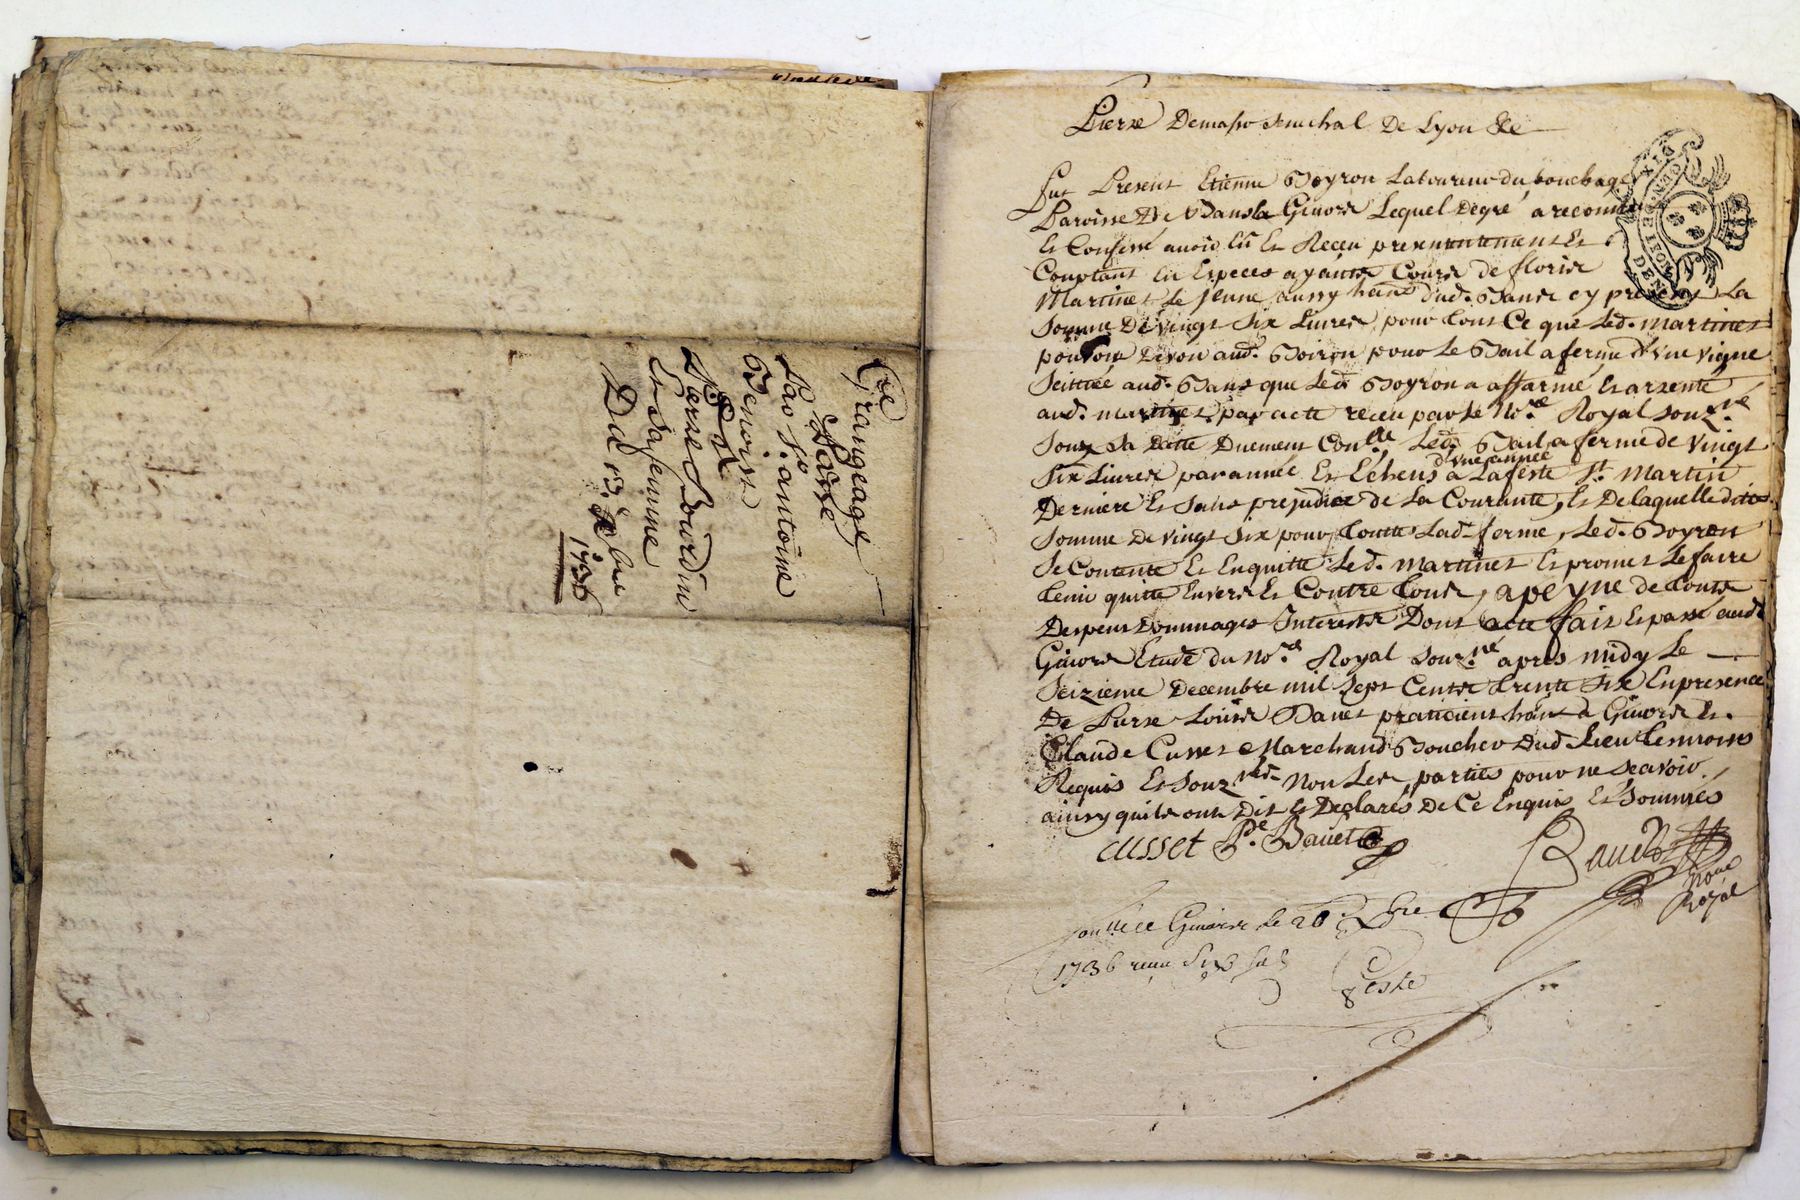 Grangeage
Passé
Par Sr. antoine
Benoist
Pierre Bourdin
Et sa femme
Du 13e xbre
1736
Pierre Demasso senechal De Lyon &c
fut Present Etienne Boyron Latourne du bouchage
Paroisse De Bans la Givors Lequel Degré a reconnu
Et Confessé avoir Eu Et Receu presententement Et
Comptant En Especes ayants Cours de floris
Martinet Le jeune aussy hant dud. Bans cy present La
somme De vingt six Livres pour tout Ce que Led. martinet
pouvoir Devoir aud. Boiron pour Le Bail a ferme d'vne vigne
scittuée aud. Bans que Led. Boyron a affermé Et arsenté
aud. martinet par acte receu par Le Nore. Royal souzné.
souz sa Datte Duement Conlle Led. Bail a ferme de vingt
six Livres par année Et Echeus d'vne année a Lafeste St. Martin
Derniere Et sans prejudice de La Courante, Et De laquelle dite
somme De vingt six pour toutte Lad. ferme, Led. Boyron
se Contente Et Enquitte Led. martinet Et promet Le faire
tenir quitte Envers Et Contre tous, apeyne de touts
Despens Dommages Interests Dont acte fait Et passé aud.
Givors Etude du nore. Royal souzné. apres midy Le
seizieme Decembre mil sept Cents trente six En presence
De Pierre Louis Bavet praticient hant a Givors Et
Claude Cusset Marchand Boucher Dud. Lieu temoins
Requis Et souznés. Non Les parties pour ne scavoir,
ainsy quils ont Dit Et Declarés De Ce Enquis Et sommés
cusset Pre. Bavet
Bavet
Nore
Royal
Controllé a Givors le 20 xbre
1736 reçu six sols
Geste
DE GEN MOYEN DIX DEN